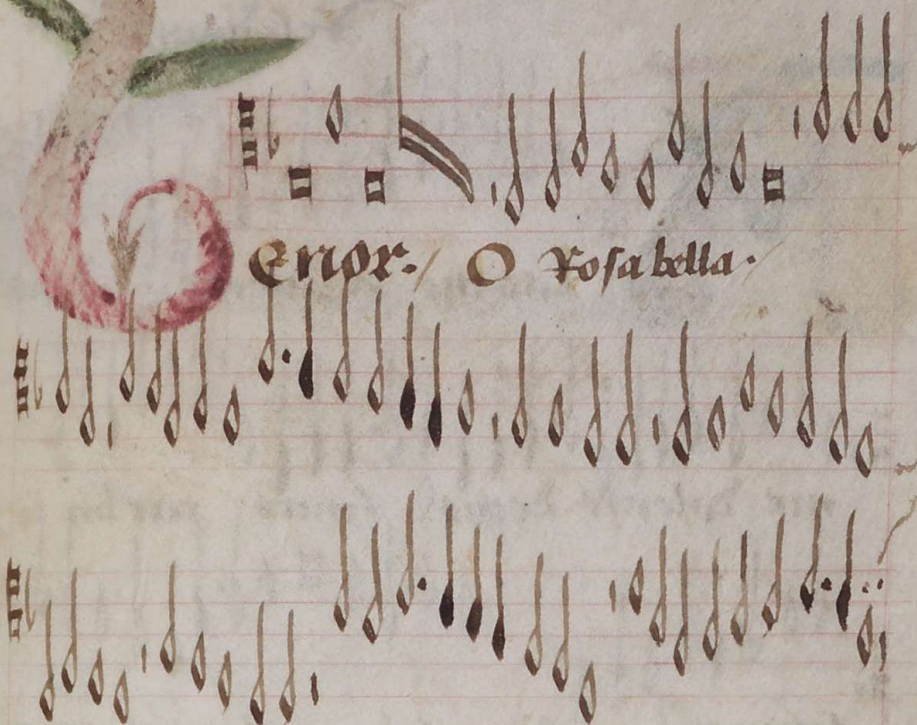 Tenor. / O Rosa bella. /